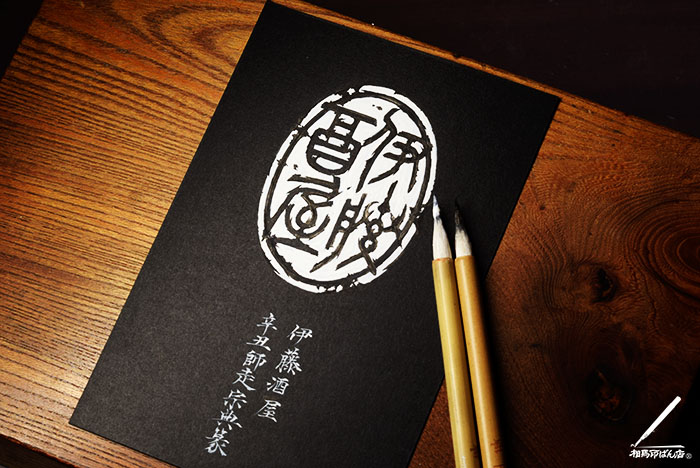 伊藤
酒屋
伊藤酒屋
辛丑師走宗典篆
相馬印ばん店